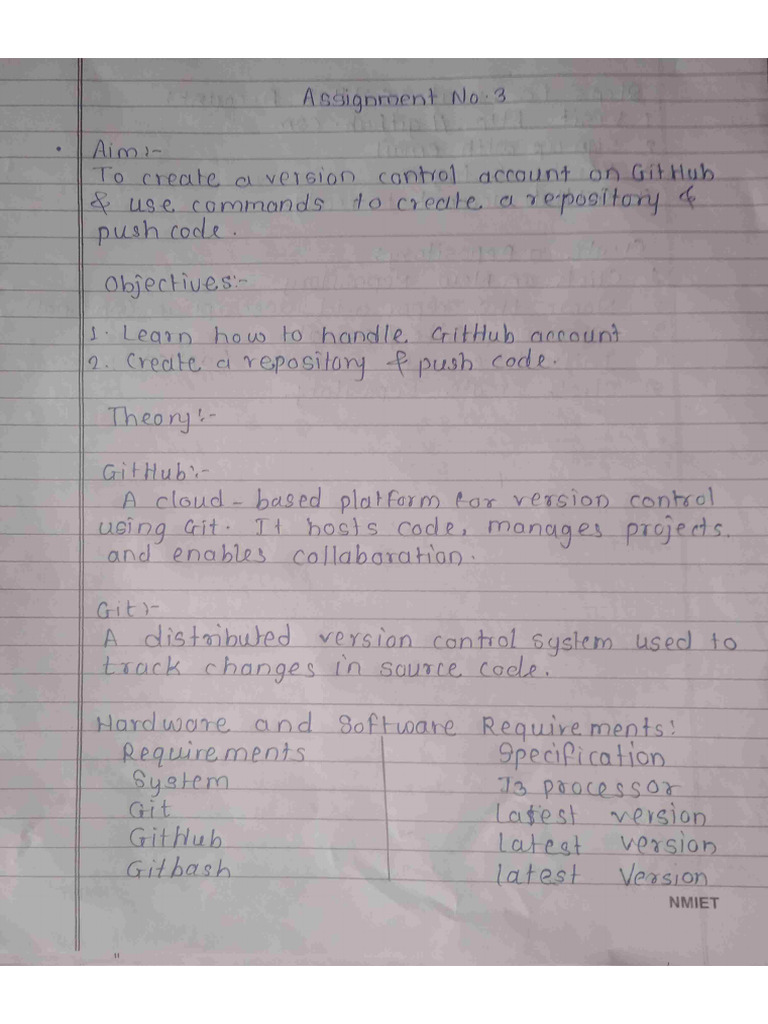 Assignment No. 3
Aim:-
To create a version control account on GitHub
& use commands to create a repository &
push code.
Objectives:-
1. Learn how to handle GitHub account
2. Create a repository & push code.
Theory:-
GitHub:-
A cloud-based platform for version control
using Git. It hosts code, manages projects.
and enables collaboration.
Git:-
A distributed version control system used to
track changes in source code.
Hardware and Software Requirements:
Requirements Specification
System I3 processor
Git latest version
GitHub latest version
Gitbash latest Version
NMIET